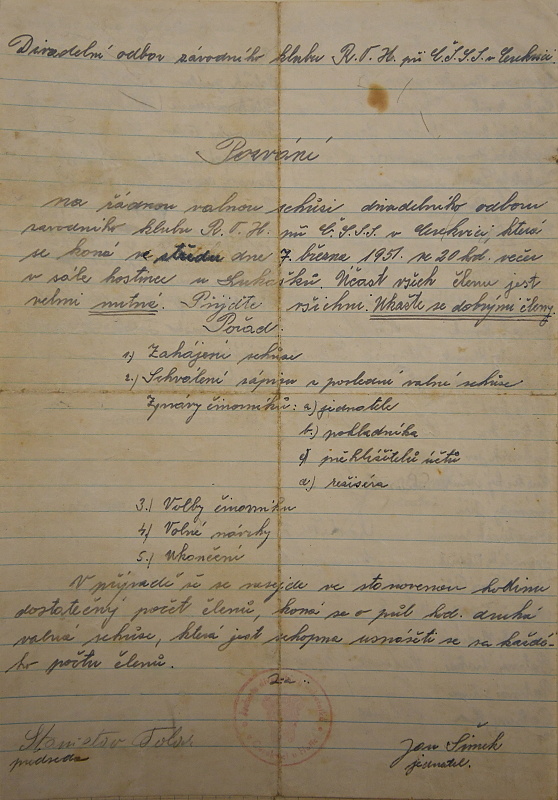 Divadelní odbor závodního klubu R.O.H. při Č.S.S.S. v Cerekvici.
Pozvání
na řádnou valnou schůsi divadelního odboru
závodního klubu R.O.H. při Č.S.S.S. v Cerekvici, která
se koná ve středu dne 7. března 1951. ve 20 hod. večer
v sále hostince u Lukášků. Účast všech členu jest
velmi nutná. Přijďte všichni. Ukažte se dobrými členy.
Pořad.
1.) Zahájení schůse
2.) Schválení zápisu z poslední valné schůse
Zprávy činovníků: a.) jednatele
b.) pokladníka
c) přehlížitelů účtů
d.) režiséra
3.) Volby činovníku
4.) Volné návrhy
5.) Ukončení
V případě že se nesejde ve stanovenou hodinu
dostatečný počet členů, koná se o půl hod. druhá
valná schůse, která jest schopna usnášeti se za každé-
ho počtu členů.
Za:
Stanislav
předseda
Jan Šimek
jednatel.